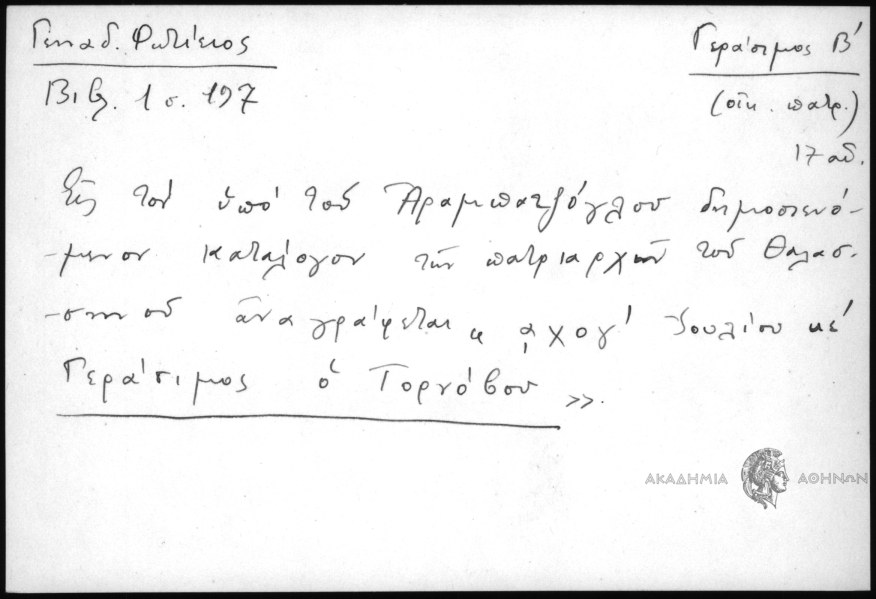 Γενναδ. Φωτίειος
Βιβλ. 1 σ. 197
Γεράσιμος Β΄
(οἰκ. πατρ.)
17 αἰ.
Εἰς τὸν ὑπὸ τοῦ Ἀραμπατζόγλου δημοσιευό-
-μενον κατάλογον τῶν πατριαρχῶν τοῦ Θαλασ-
-σινοῦ ἀναγράφεται « ͵αχογ΄ Ἰουλίου κέ
Γεράσιμος ὁ Τορνόβου ».
ΑΚΑΔΗΜΙΑ ΑΘΗΝΩΝ